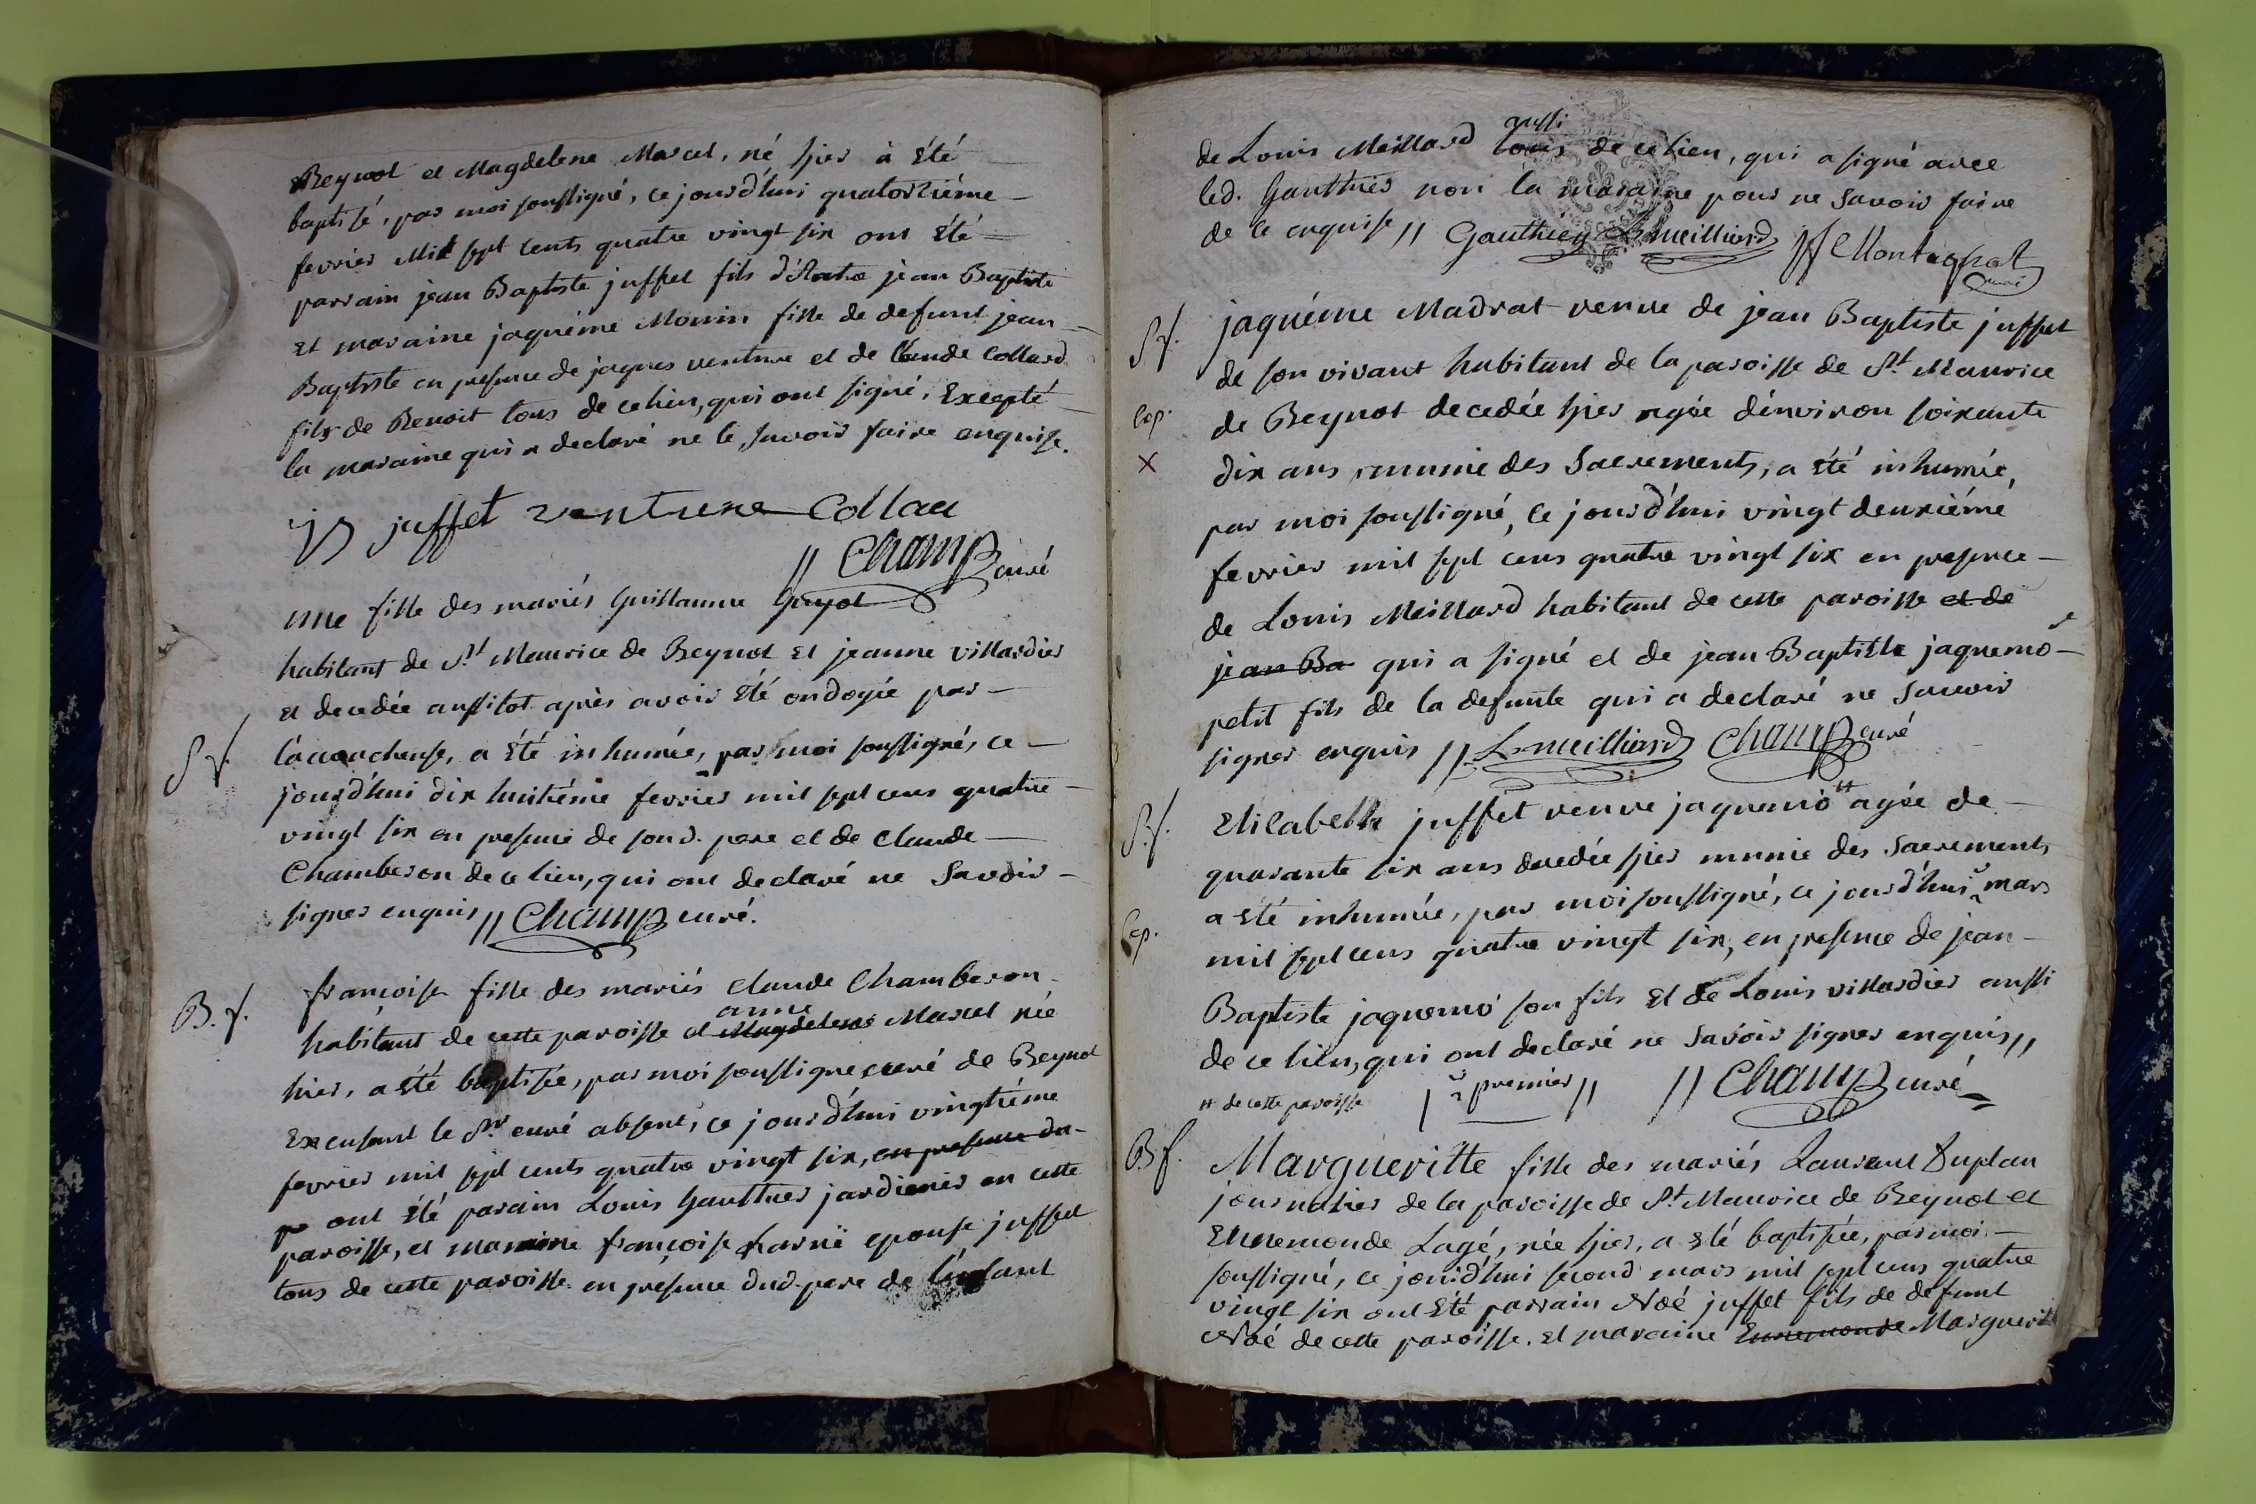 Beynot et Magdelene Marcel, né hier à été
baptisé, par moi soussigné, ce jourd'hui quatorziéme
fevrier Mil sept cents quatre vingt six ont été
parrain jean Baptiste juffet fils d'autre jean Baptiste
Et maraine jaquéme Monin fille de defunt jean
Baptiste en presence de jaques venture et de Claude Collard
fils de Benoit tous de ce lieu, qui ont signé, Excepté
la maraine qui a declaré ne le savoir faire enquise.
juffet venture Collau
// Champ curé
une fille des mariés Guillaume Guyot
habitant de St Maurice de Beynot Et jeanne villardier
et decedée aussitot après avoir été ondoyée par
S f.
l'acoucheuse, a été inhumée, par moi soussigné, ce
jourd'hui dix huitiéme fevrier mil sept cens quatre
vingt six en presence de sond. pere et de Claude
Chamberon de ce lieu, qui ont declaré ne savoir
signer enquis // Champ curé.
B. f.
françoise fille des mariés Claude Chamberon
anne
habitant de cette paroisse et Magdelene Marcel née
hier, a été baptisée, par moi soussigné curé de Beynot
Excusant le Sr curé absent, ce jourd'hui vingtiéme
fevrier mil sept cents quatre vingt six, en presence du
ont été parain Louis Gauthier jardinier en cette
paroisse, et maraine françoise epouse juffet
tous de cette paroisse en presence dud. pere de l'enfant
aussi
de Louis Meillard tous de ce lieu, qui a signé avec
led. Gauthier non la maraine pour ne savoir faire
de ce enquise // Gauthier L meilliard Montagnat
curé
S f.
jaquéme Madrat veuve de jean Baptiste juffet
de son vivant habitant de la paroisse de St Maurice
Cop.
de Beynot decedée hier agée d'environ soixante
X
dix ans, munie des Sacrements, a été inhumée,
par moi soussigné, ce jourd'hui vingt deuxiéme
fevrier mil sept cens quatre vingt six en presence
de Louis Meillard habitant de cette paroisse et de
jean Ba qui a signé et de jean Baptiste jaquemo
petit fils de la defunte qui a declaré ne savoir
signer enquis // L meilliard Champ curé
S. f.
Elisabeth juffet veuve jaquemo # agée de
quarante six ans decedée hier munie des Sacrements
a été inhumée, par moi soussigné, ce jourd'hui mars
Cop.
mil sept cens quatre vingt six, en presence de jean
Baptiste jaquemo son fils Et de Louis villardier aussi
de ce lieu, qui ont declaré ne savoir signer enquis //
# de cette paroisse
premier // // Champ curé
B f.
Margueritte fille des mariés Laurent Duplan
journalier de la paroisse de St. Maurice de Beynot et
Ennemonde Lagé, née hier, a été baptisée, par moi
soussigné, ce jourd'hui second mars mil sept cens quatre
vingt six ont été parrain Noé juffet fils de defunt
Noé de cette paroisse. Et maraine Ennemonde Marguerit